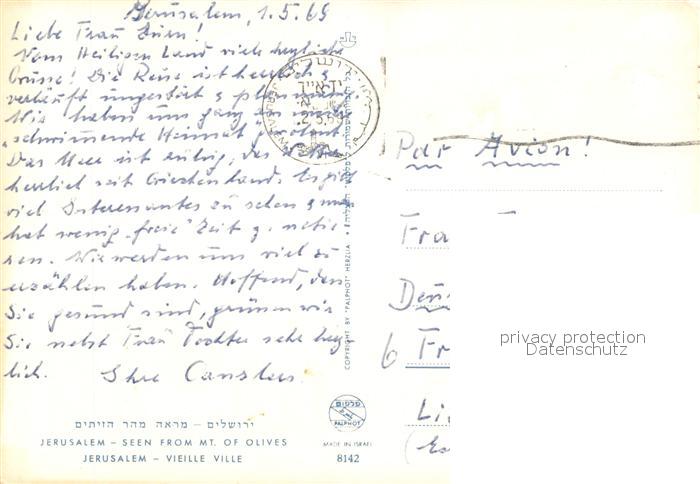 Jerusalem, 1.5.69
Liebe Frau
Vom Heiligen Land viele herzliche
Grüsse! Die Reise ist herrlich &
verläuft ungestört & planmässig.
Wir haben uns ganz an unsere
"schwimmende Heimat"
Das Meer ist ruhig, das Wetter
herrlich seit Griechenland. Es gibt
viel Interessantes zu sehen & man
hat wenig "freie" Zeit z. notie-
ren. Wir werden uns viel zu
erzählen haben. Hoffend, dass
Sie gesund sind, grüssen wir
Sie nebst Frau Tochter sehr herz-
lich. Ihre Canslers
ירושלים
JERUSALEM
Par Avion!
Fra
Deu
6 Fr
Li
privacy protection
Datenschutz
COPYRIGHT BY "PALPHOT" HERZLIA
פלפוט
PALPHOT
ירושלים – מראה מהר הזיתים
JERUSALEM – SEEN FROM MT. OF OLIVES
JERUSALEM – VIEILLE VILLE
MADE IN ISRAEL
8142